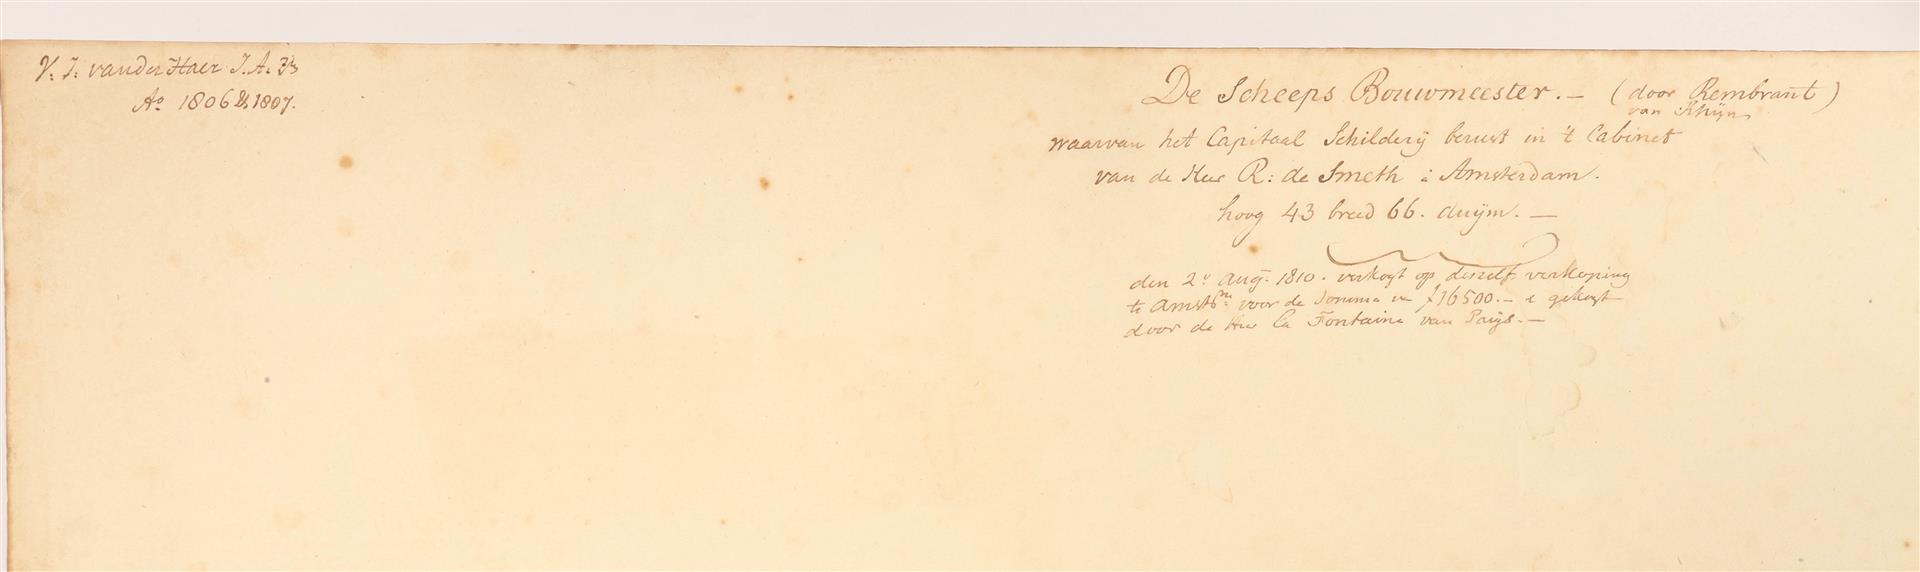 V: I: vander Haer I.A. Zn
Ao 1806 & 1807.
De Scheeps Bouwmeester. — (door Rembrant)
van Rhijn
waarvan het Capitaal Schilderij berust in 't Cabinet
van de Heer R: de Smeth à Amsterdam.
hoog 43 breed 66. duijm. —
den 2e Aug. 1810. verkogt op deszelfs verkoping
te Amstdm. voor de Somma van ƒ16500.— & gekogt
door de Heer La Fontaine van Parijs. —